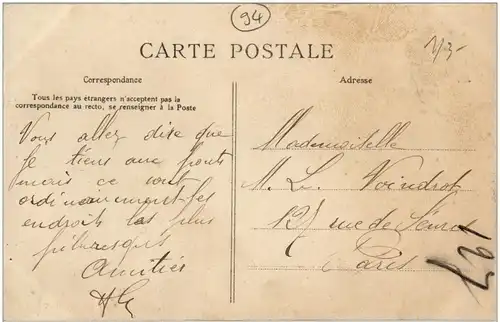 94
1/3-
CARTE POSTALE
Correspondance
Adresse
Tous les pays étrangers n'acceptent pas la
correspondance au recto, se renseigner à la Poste
Vous allez dire que
je tiens aux ponts
mais ce sont
ordinairement les
endroits les plus
pittoresques
Amitiés
Mademoiselle
M. L. Voindrot
rue de Sèvres
Paris